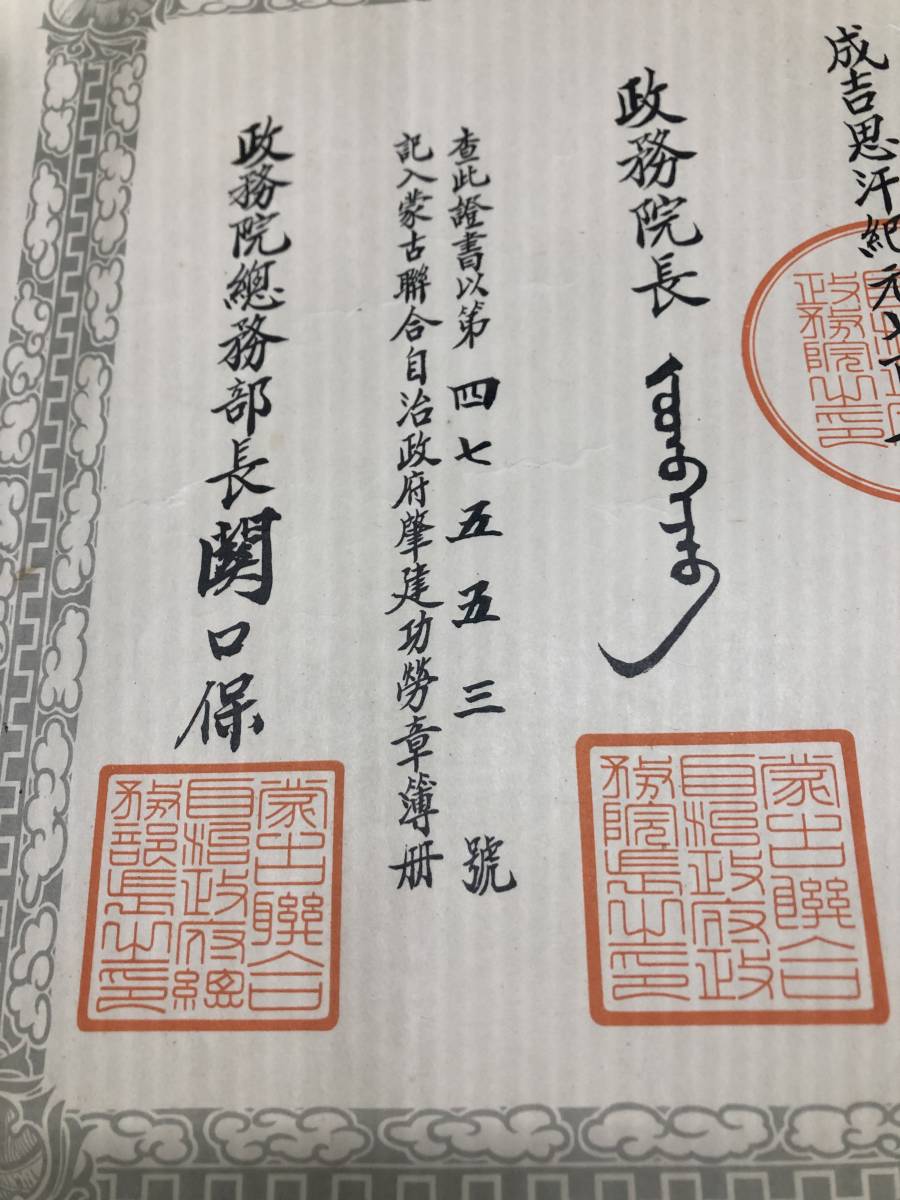 成吉思汗紀元七百
政務院之印
政務院長
蒙古聯合
自治政府政
務院長之印
查此證書以第四七五五三號
記入蒙古聯合自治政府肇建功勞章簿册
政務院總務部長 関口保
蒙古聯合
自治政府總
務部長之印